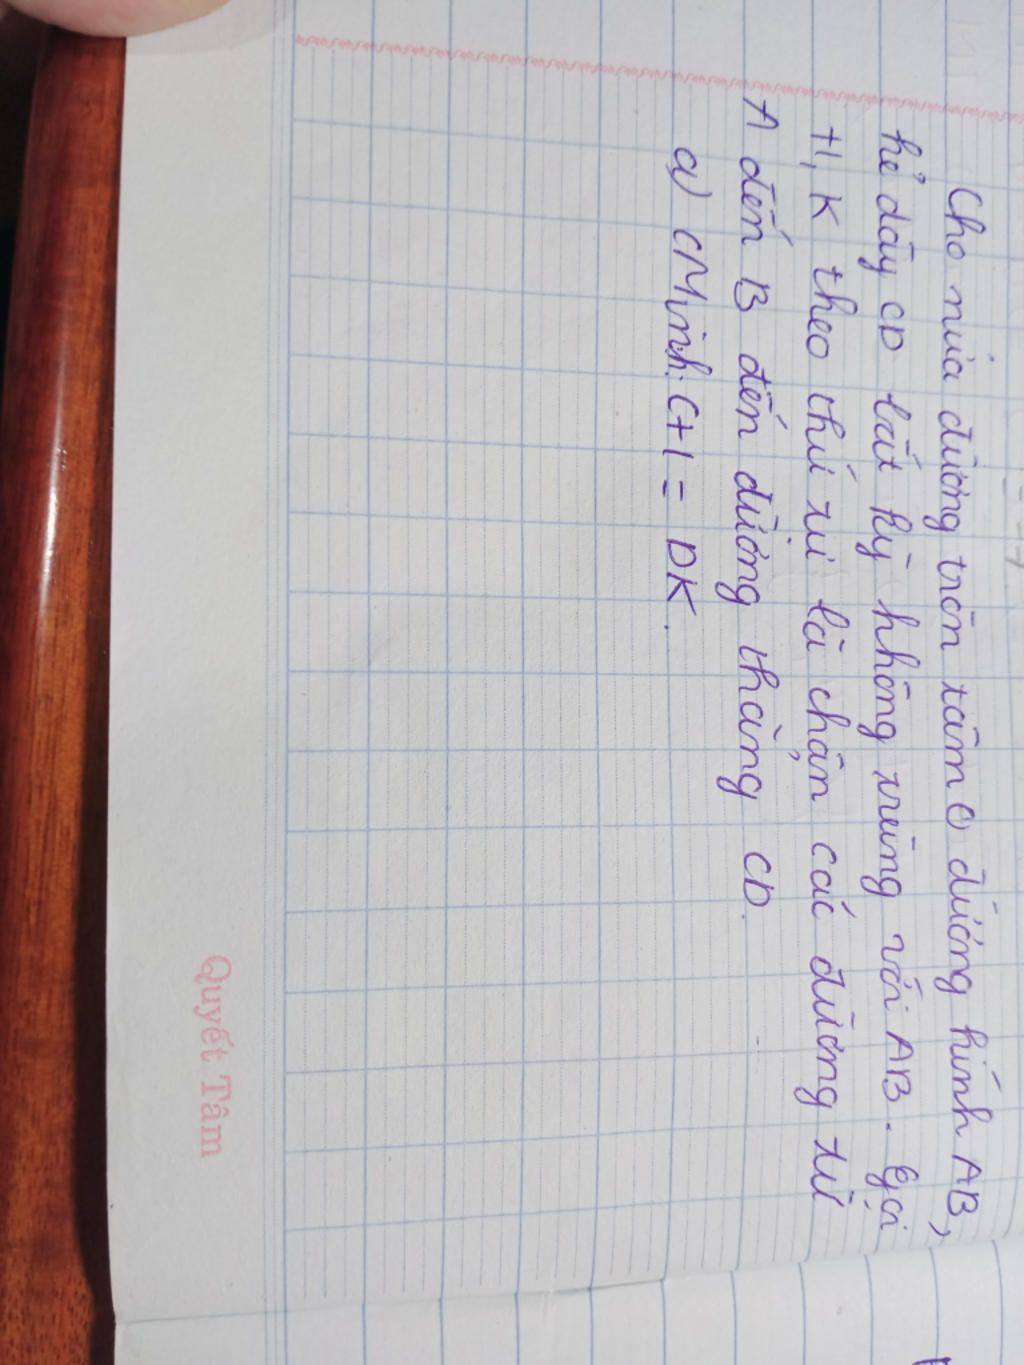 Cho nửa đường tròn tâm O đường kính AB,
kẻ dây CD bất kỳ không trùng với AB. Gọi
H, K theo thứ tự là chân các đường từ
A đến B đến đường thẳng CD.
a) CMinh: CH = DK.
Quyết Tâm